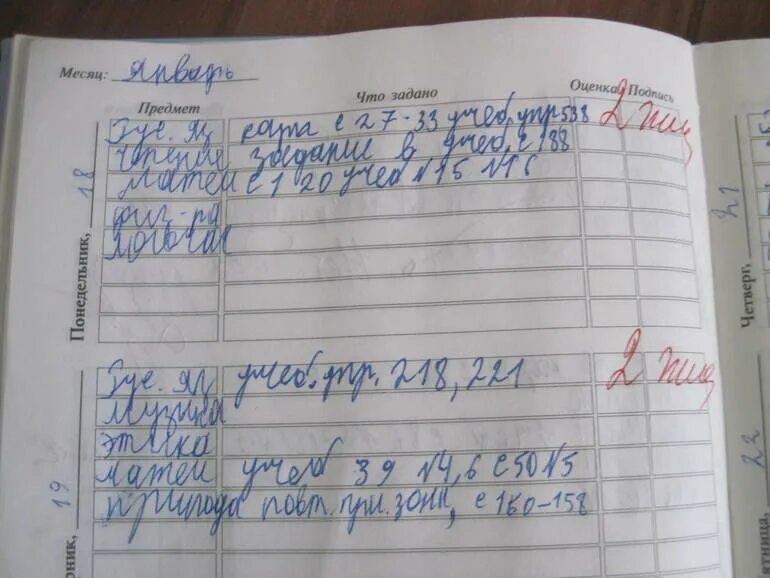 Месяц: январь
Предмет Что задано Оценка Подпись
Рус. яз карта с 27-33 учеб. упр 538 2
чтение в учеб. с 188
матем с 120 учеб №15 №16
физ-ра
Понедельник, 18
Рус. яз учеб. упр. 218, 221 2
музыка
этика
матем учеб 39 №4,6 с 50 №5
природа повт. при. зоны, с 160-158
орник, 19
Четверг, 21
ятница, 22